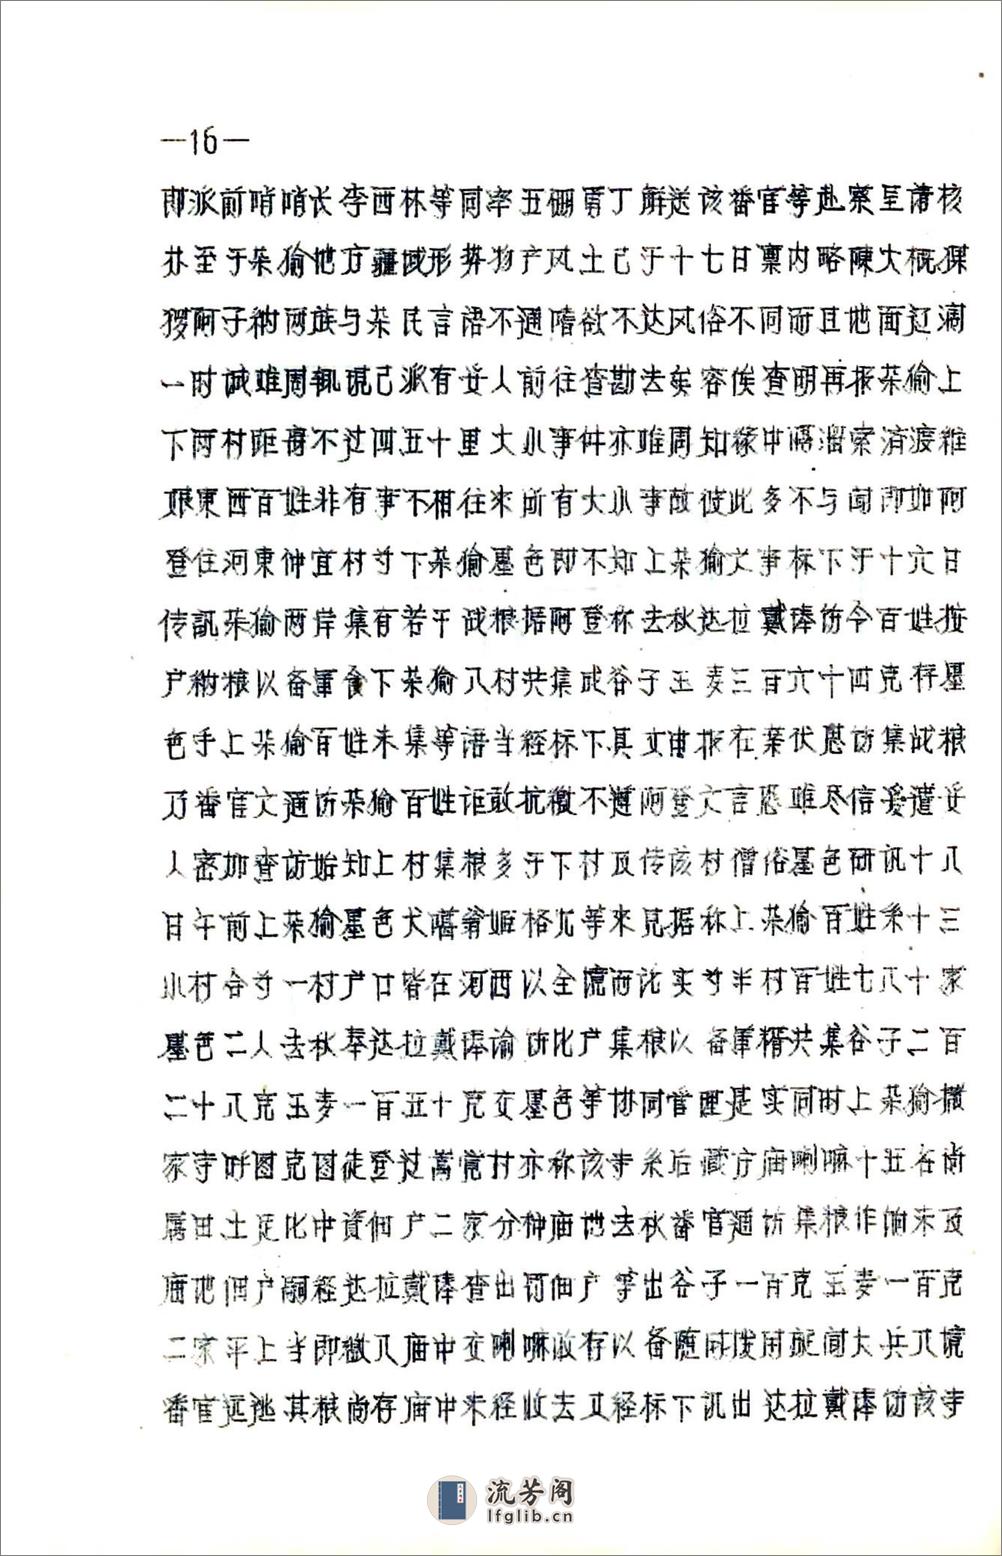 —16—
即派前哨哨长李西林等同率五硼勇丁解送该番官等赴寨至请核
办至于杂瑜地方疆域形势物产风土已于十七日禀内略陳大概猓
猡阿子纳两族与杂民言语不通嗜欲不达风俗不同而且地面辽濶
一时诚难周知现已派有妥人前往查勘去矣容俟查明再报杂瑜上
下两村距离不过四五十里大小事件亦难周知缘中隔溜索济渡维
艰東西百姓非有事不相往来所有大小事故彼此多不与闻即如阿
登住河東仲宜村寸下杂瑜墨色即不知上杂瑜文事标下于十六日
传訊杂瑜两岸集有若干战粮据阿登称去秋达拉戴琫飭令百姓按
户纳粮以备軍食下杂瑜八村共集成谷子玉麦三百六十四克存墨
色手上杂瑜百姓未集等语当经标下具文申报在案伏思飭集战粮
乃番官文通飭杂瑜百姓讵敢抗徼不遵阿登文言恐难尽信爰遣妥
人密加查訪始知上村集粮多于下村及传该村僧俗墨色研讯十八
日午前上杂瑜墨色犬噶翁姬格兀等来見据称上杂瑜百姓系十三
小村合寸一村户口皆在河西以全境而论实寸半村百姓七八十家
墨色二人去秋奉达拉戴琫谕飭比户集粮以备軍糈共集谷子二百
二十八克玉麦一百五十克交墨色等协同管理是实同时上杂瑜撒
家寺呼图克图徒登过蒿党村亦称该寺系后藏方庙喇嘛十五名尚
属田土足比中資佃户二家分种庙地去秋番官通飭集粮作餉未及
庙地佃户嗣经达拉戴琫查出罚佃户等出谷子一百克玉麦一百克
二家平上当即缴入庙中交喇嘛收存以备随时拨用旋闻大兵入境
番官远逃其粮尚存庙中未经收去又经标下讯出达拉戴琫飭该寺
流芳阁
lfglib.cn